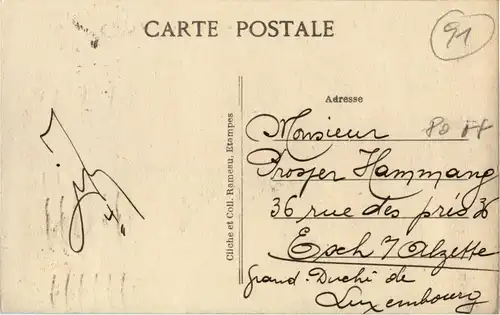 CARTE POSTALE
91
Adresse
80 FF
Cliché et Coll. Rameau, Etampes
Monsieur
Prosper Hammang
36 rue des prés 36
Esch s/Alzette
Grand-Duché de
Luxembourg